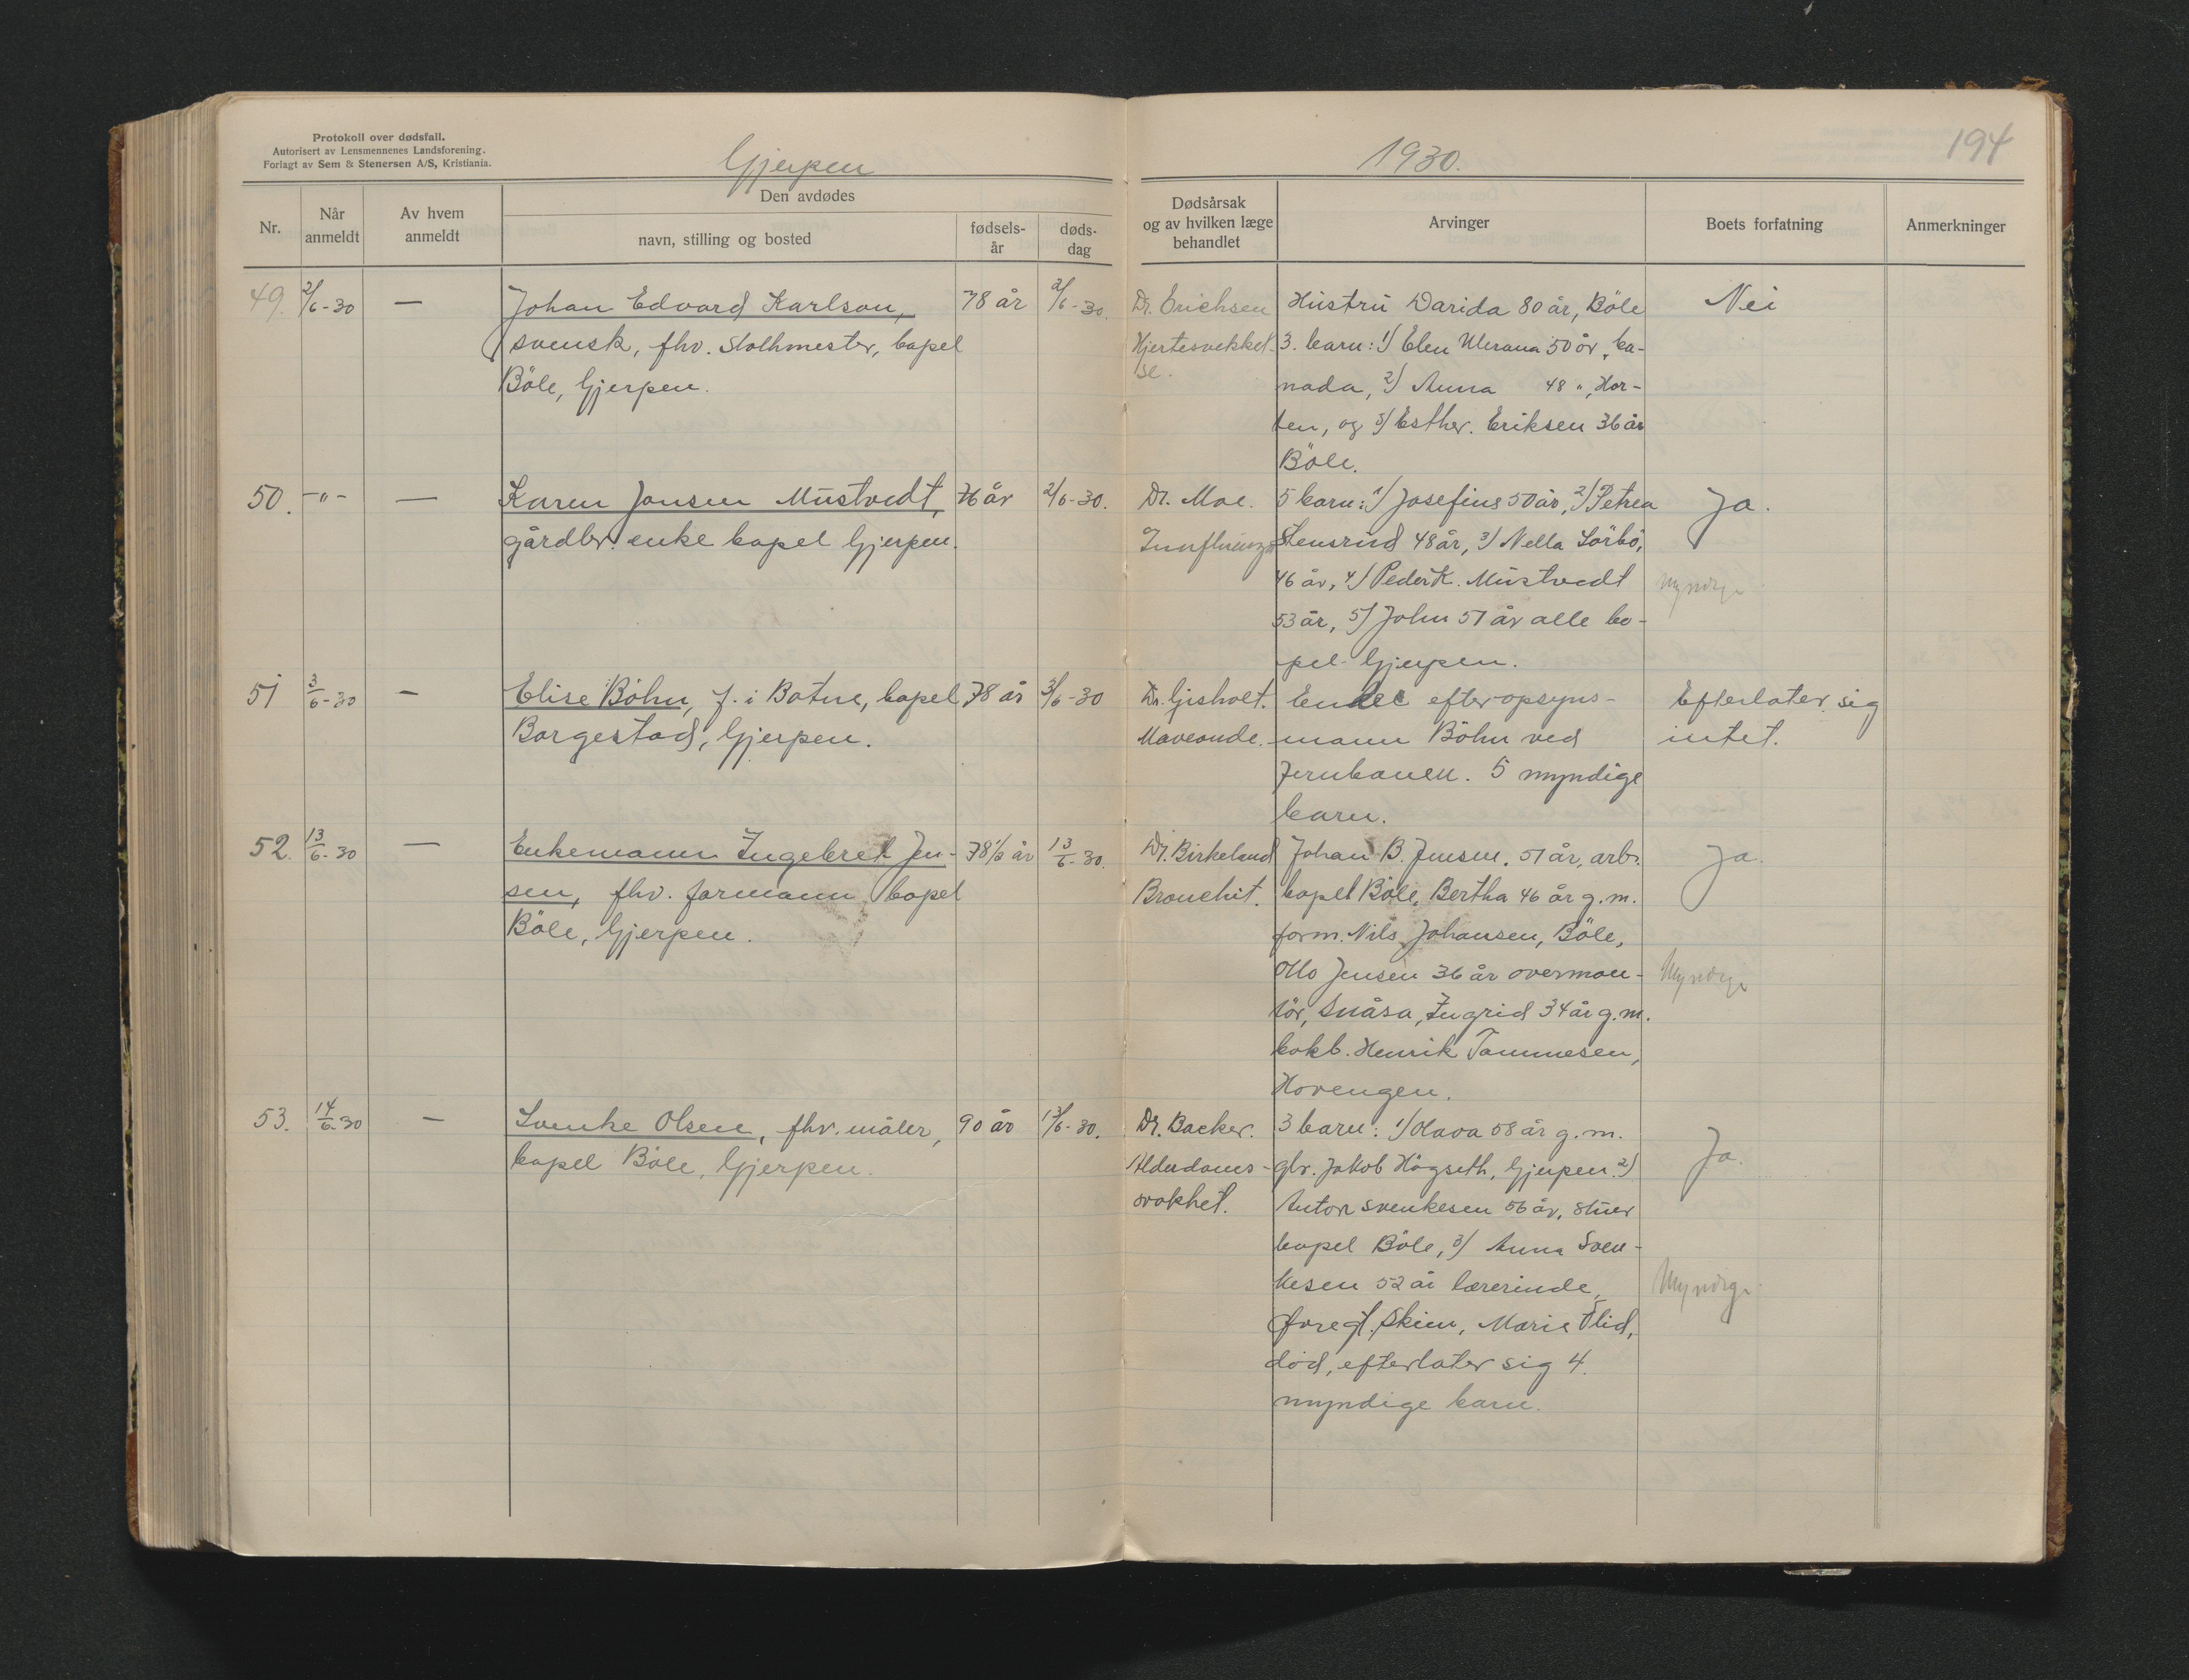 Protokoll over dødsfall.
Autorisert av Lensmennenes Landsforening.
Forlagt av Sem & Stenersen A/S, Kristiania.
Gjerpen
1930.
194
Nr.
Når anmeldt
Av hvem anmeldt
Den avdødes
navn, stilling og bosted
fødsels-år
døds-dag
Dødsårsak og av hvilken læge behandlet
Arvinger
Boets forfatning
Anmerkninger
49. 2/6-30 — Johan Edvard Karlson, 78 år 2/6-30.
svensk, fhv. stolhmester, bopel
Böle, Gjerpen.
Dr. Erichsen
Hjertesvekkel-
se.
Hustru Darida 80 år, Böle
3. barn: 1) Elen Ulerana 50 år, Ca-
nada, 2) Anna 48 ", Hor-
ten, og 3) Esther. Eriksen 36 år
Böle.
Nei
50. -"- — Karen Jonsen Mustvedt, 76 år 2/6-30.
gårdbr. enke bopel Gjerpen.
Dr. Moe.
Innfluenza
5 barn: 1) Josefius 50 år, 2) Petrea
Stensrud 48 år, 3) Nella Sörbö,
46 år, 4) Peder K. Mustvedt
53 år, 5) John 51 år alle bo-
pel Gjerpen.
Ja.
Myndige
51 3/6-30 — Elise Böhn, f. i Botne, bopel 78 år 3/6-30
Borgestad, Gjerpen.
Dr. Gisholt.
Maveonde.
Enke efter opsyns-
mann Böhn ved
Jernbanen. 5 myndige
barn.
Efterlater sig
intet.
52. 13/6-30 — Enkemann Ingebret Jen- 78 1/2 år 13/6-30.
sen, fhv. formann bopel
Böle, Gjerpen.
Dr. Birkeland
Bronchit.
Johan B. Jensen, 51 år, arb.
bopel Böle, Bertha 46 år g.m.
form. Nils Johansen, Böle,
Otto Jensen 36 år overmon-
tör, Snåsa, Ingrid 34 år g.m.
bokb. Henrik Tommesen,
Hovengen.
Ja.
Myndige
53. 14/6-30 — Svenke Olsen, fhv. måler, 90 år 13/6-30.
bopel Böle, Gjerpen.
Dr. Backer.
Alderdoms-
svakhet.
3 barn: 1) Olava 58 år g.m.
gbr. Jakob Högseth, Gjerpen. 2)
Anton Svenkesen 56 år, stuer
bopel Böle, 3) Anna Sven-
kesen 52 år lærerinde,
Skien, Marie Flid,
död, efterlater sig 4.
myndige barn.
Ja.
Myndige